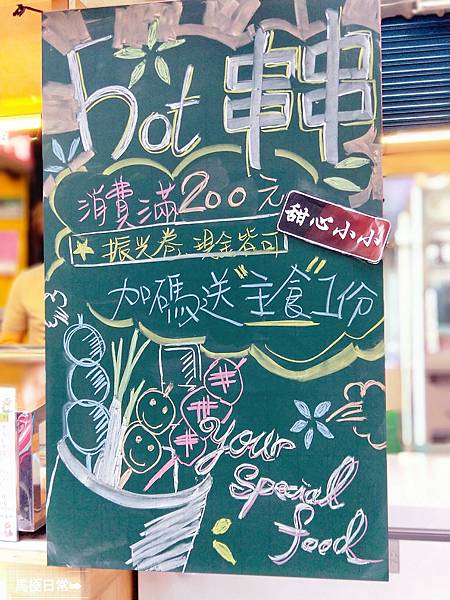 hot 串串
消費滿200元
甜心小小
★振興券.現金皆可
加碼送"主食"1份
your
special
food
馬極日常